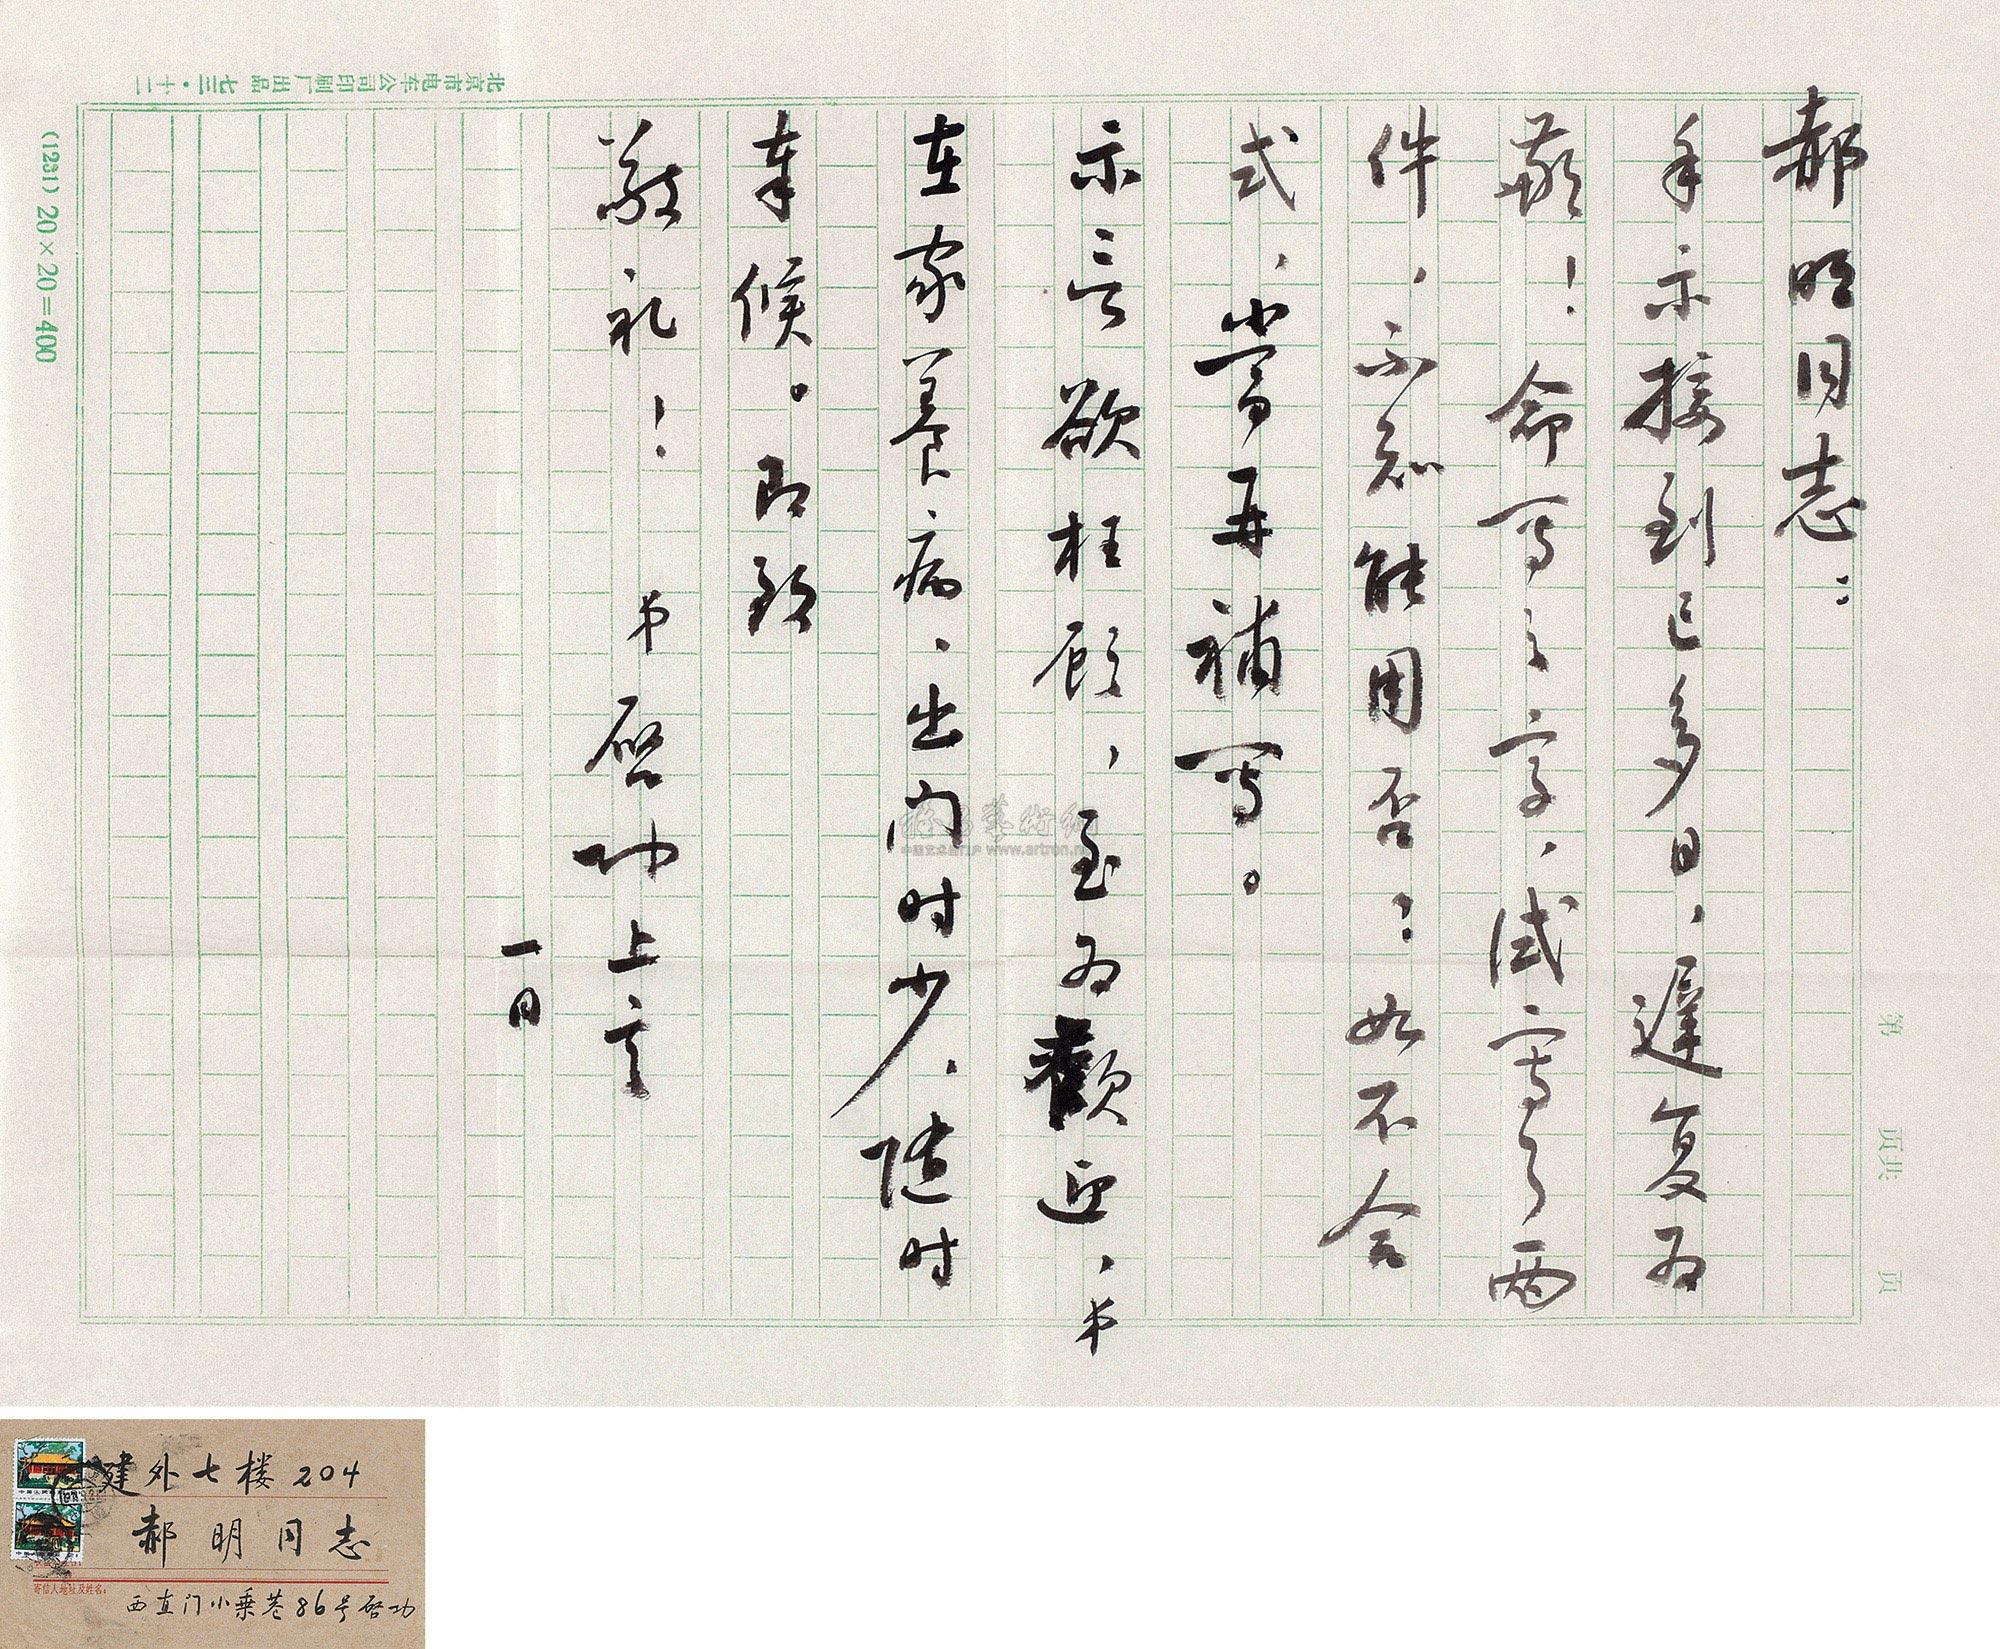 郝明同志：
手示接到已多日，遲复为
歉！命写之字，试写了两
件，不知能用否？如不合
式，当再補写。
示言欲枉顾，至为歡迎，弟
在家養病，出门时少，随时
奉候。即致
敬礼！
弟启功上言
一日
北京市电车公司印刷厂出品 七三·十二
(1231) 20×20=400
第 页共 页
中国艺术品门户 www.artron.net
建外七楼204
郝明同志
寄信人地址及姓名：
西直门小乘巷86号启功